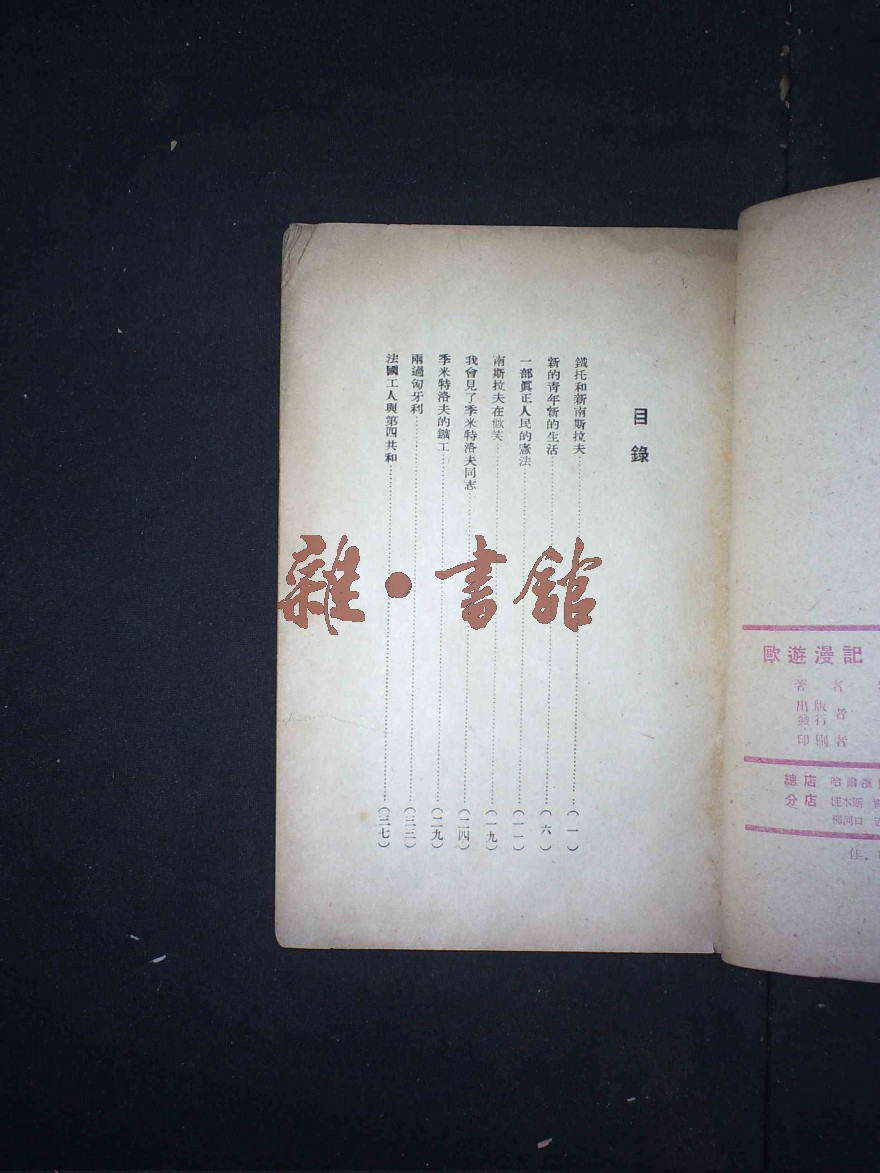 目錄
鐵托和新南斯拉夫……(一)
新的青年新的生活……(六)
一部眞正人民的憲法……(一一)
南斯拉夫在微笑……(一九)
我會見了季米特洛夫同志……(二四)
季米特洛夫的鑛工……(二九)
兩過匈牙利……(三三)
法國工人與第四共和……(三七)
雜·書館
歐遊漫記
著者
出版
發行者
印刷者
總店 哈爾濱
分店 佳木斯
佳.